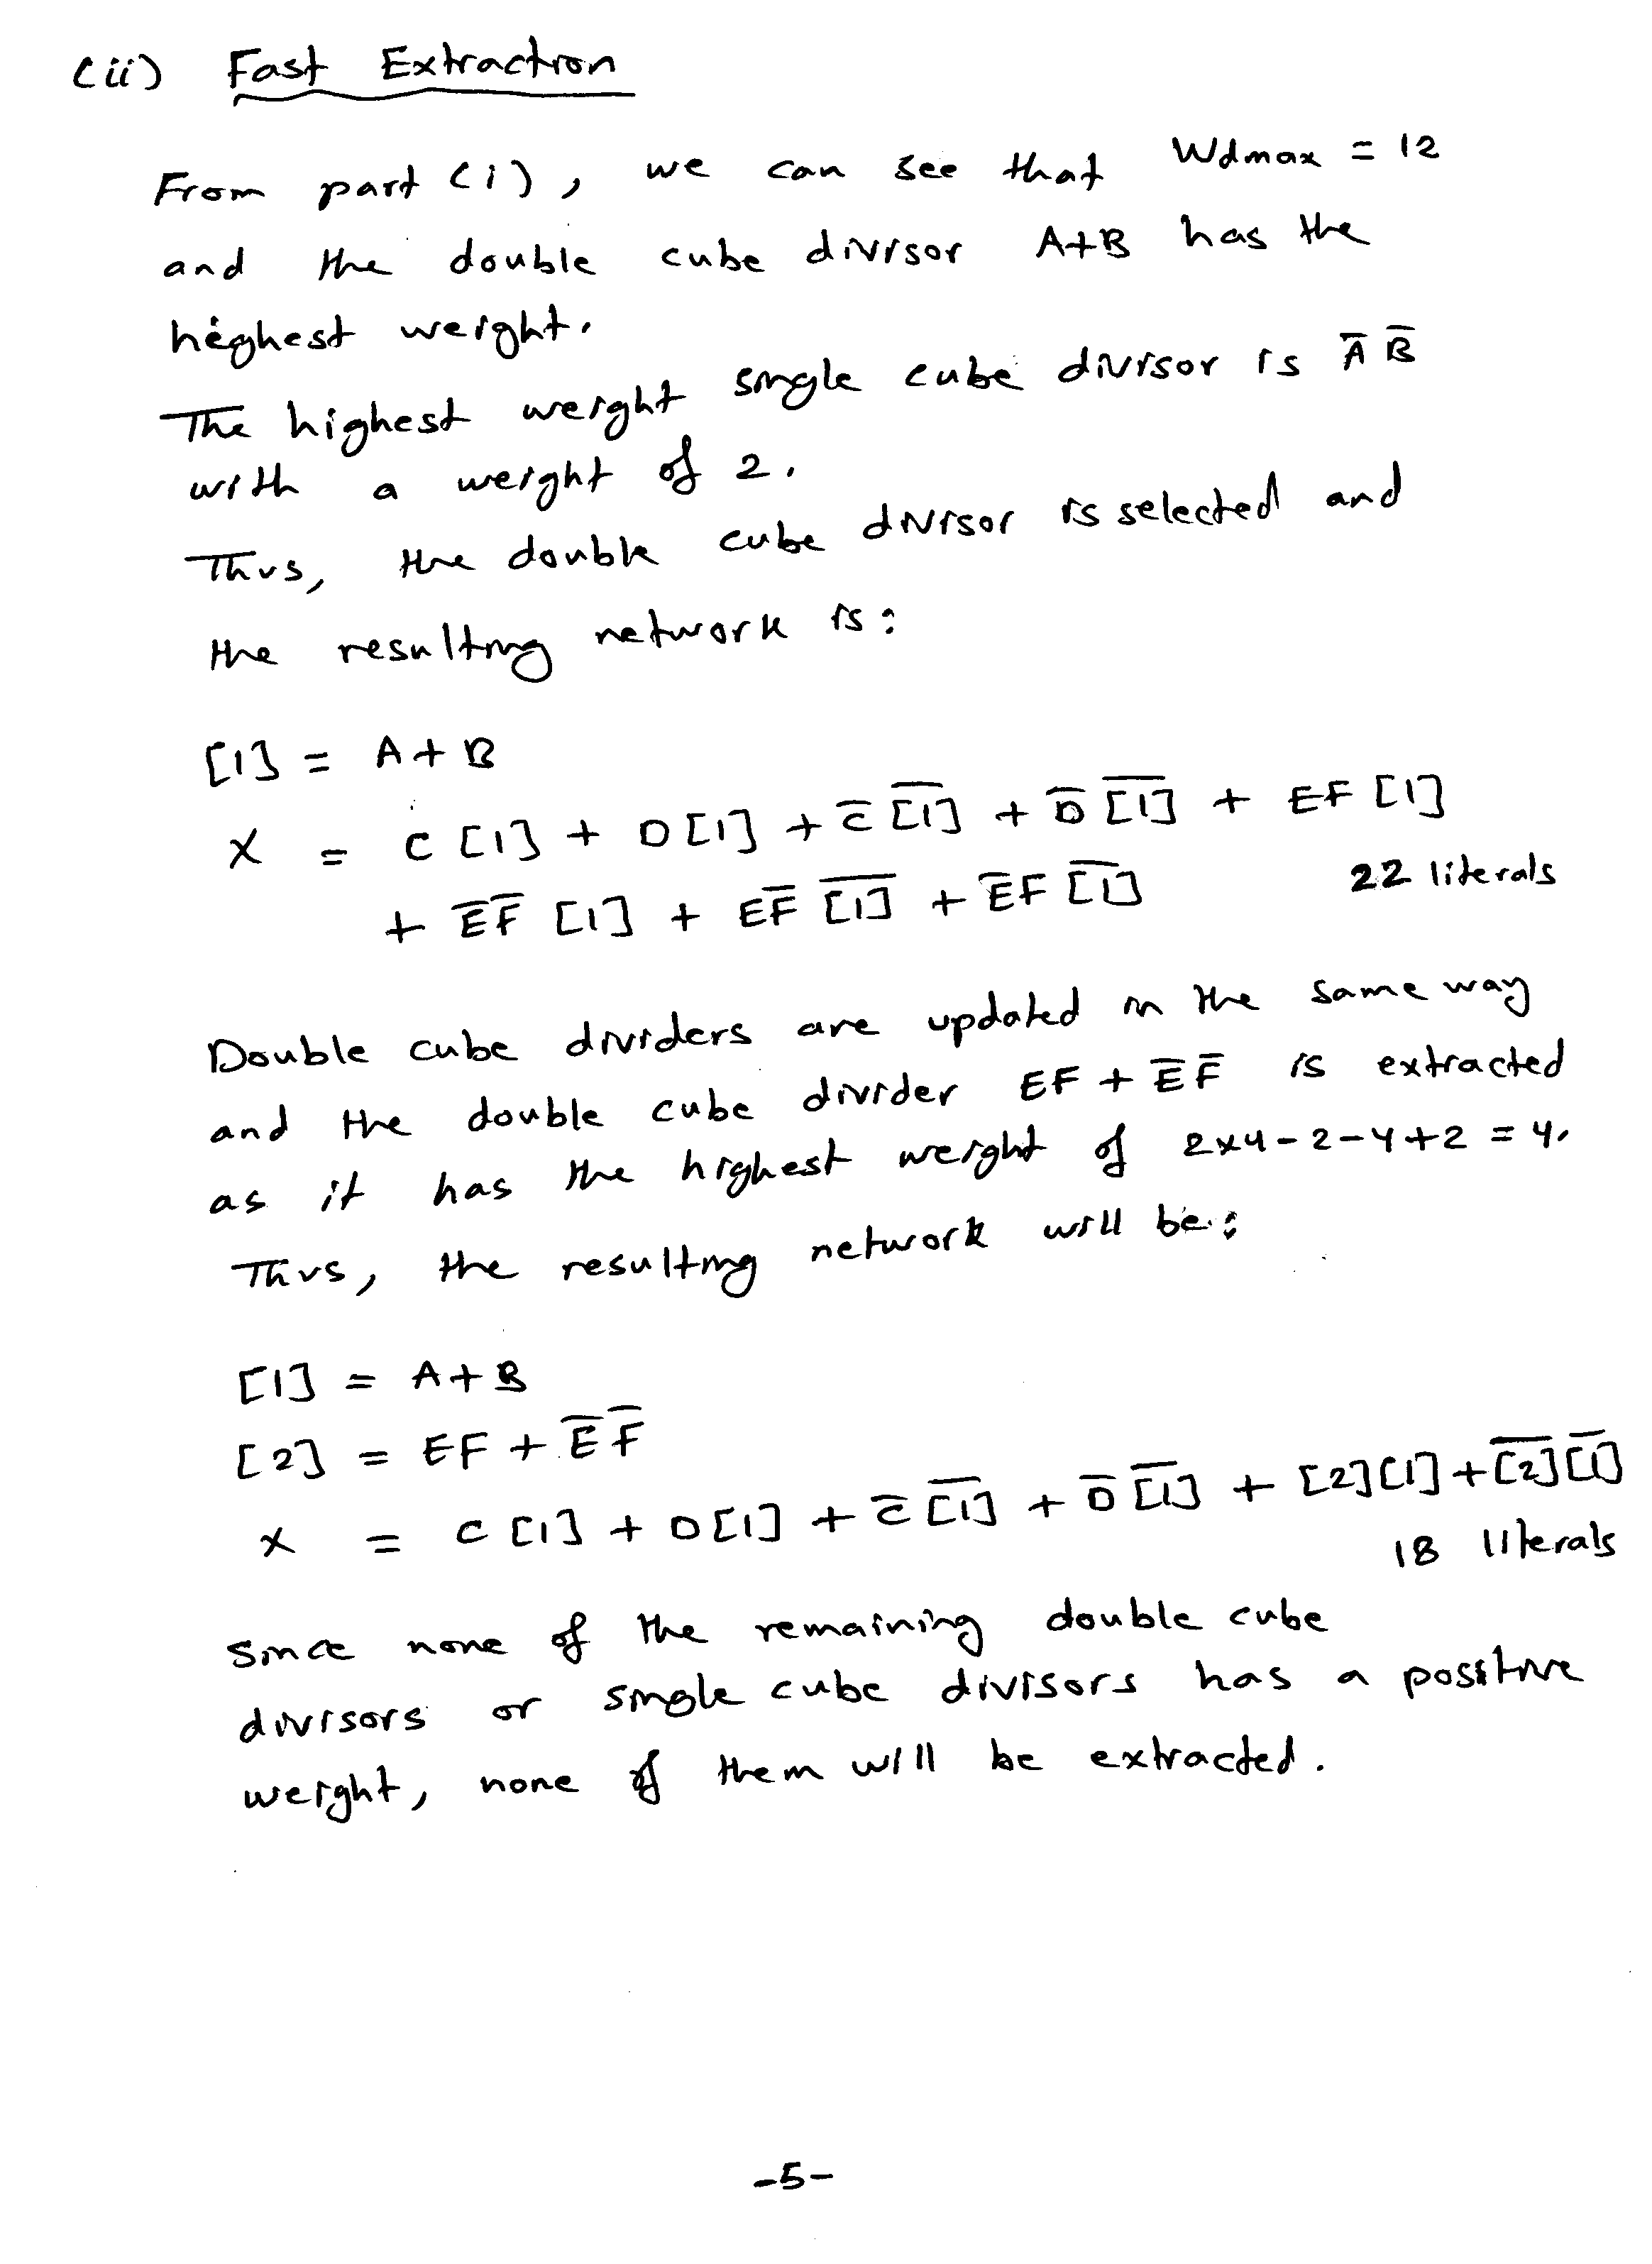 (ii) Fast Extraction
From part (i), we can see that Wdmax = 12
and the double cube divisor A+B has the
heghest weight.
The highest weight single cube divisor is A̅ B̅
with a weight of 2.
Thus, the double cube divisor is selected and
the resulting network is:
[1] = A+B
X = C[1] + D[1] + C̅ [̅1̅]̅ + D̅ [̅1̅]̅ + EF[1]
+ E̅F̅ [1] + EF̅ [̅1̅]̅ + E̅F [̅1̅]̅ 22 literals
Double cube dividers are updated in the same way
and the double cube divider EF + E̅F̅ is extracted
as it has the highest weight of 2x4-2-4+2 = 4.
Thus, the resulting network will be:
[1] = A+B
[2] = EF + E̅F̅
X = C[1] + D[1] + C̅ [̅1̅]̅ + D̅ [̅1̅]̅ + [2][1] + [̅2̅]̅ [̅1̅]̅
18 literals
Since none of the remaining double cube
divisors or single cube divisors has a positive
weight, none of them will be extracted.
-5-